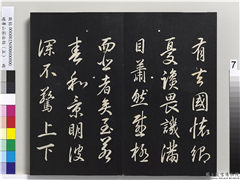 有去國懷鄉
憂讒畏譏滿
目蕭然感極
而悲者矣至若
春和景明波
瀾不驚上下
7